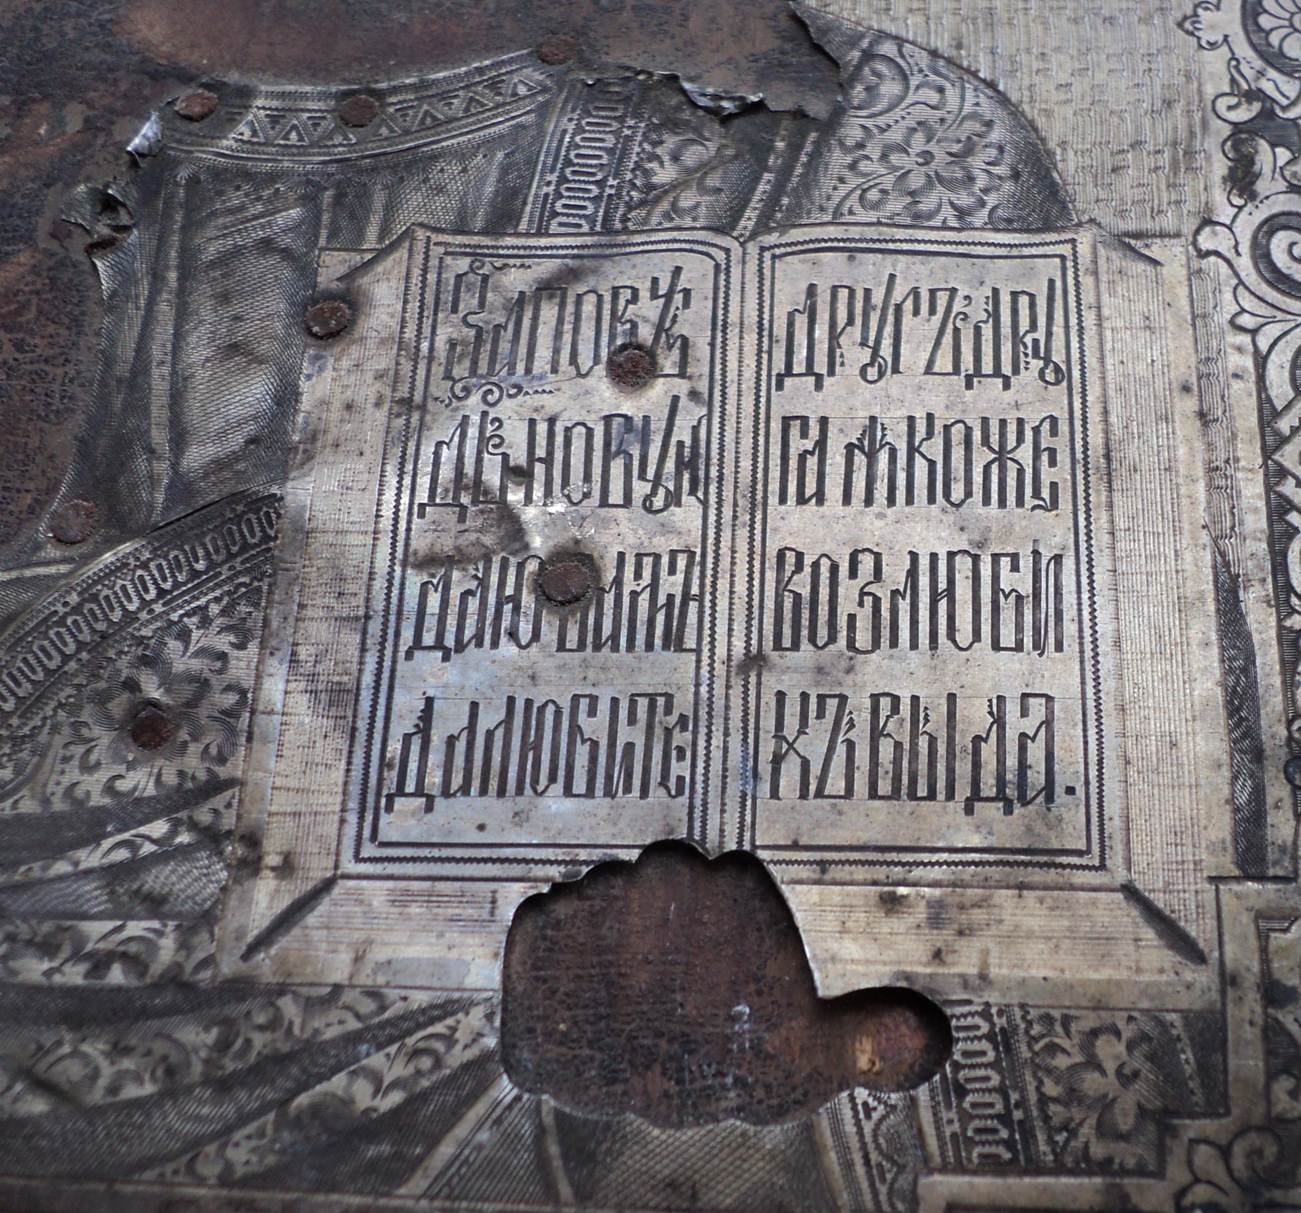 ЗАПОВѢ
ДЬ НОВУЮ
ДАЮ ВАМЪ
ДА ЛЮБИТЕ
ДРУГЪ ДРУ
ГА ѦКОЖЕ
ВОЗЛЮБИ
ХЪ ВЫ ДА.